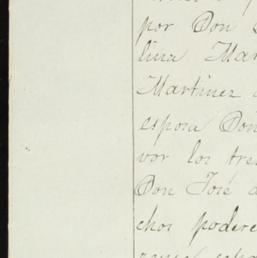 por Don
lina Mar
Martinez
espora Don
vor los tres
Don José
chos podere